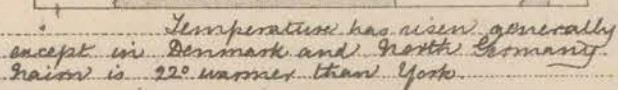 Temperature has risen generally
except in Denmark and North Germany.
Nairn is 22° warmer than York.